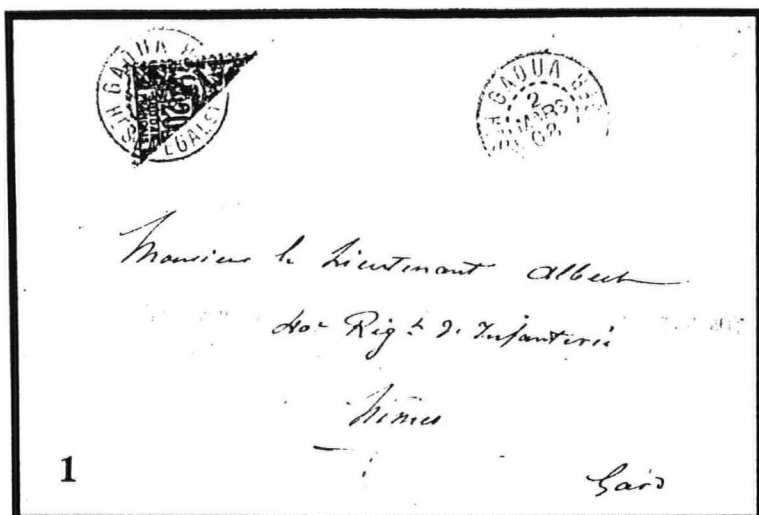 GAOUA
GAOUA
2
MARS
02
Monsieur le Lieutenant Albert
40e Rigt d'Infanterie
Nîmes
Gard
1